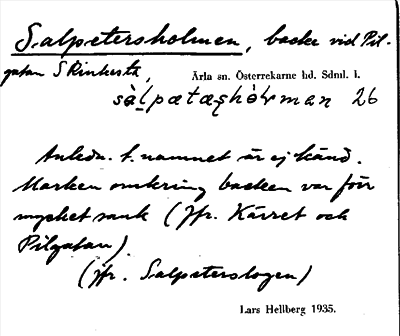 Salpetersholmen, backe vid Pil-
gatan S Rinkesta,
Ärla sn. Österrekarne hd. Sdml. l.
26
Anledn. t. namnet är ej känd.
Marken omkring backen var förr
mycket sank (Jfr. Kärret och
Pilgatan).
(Jfr. Salpeterslogen)
Lars Hellberg 1935.